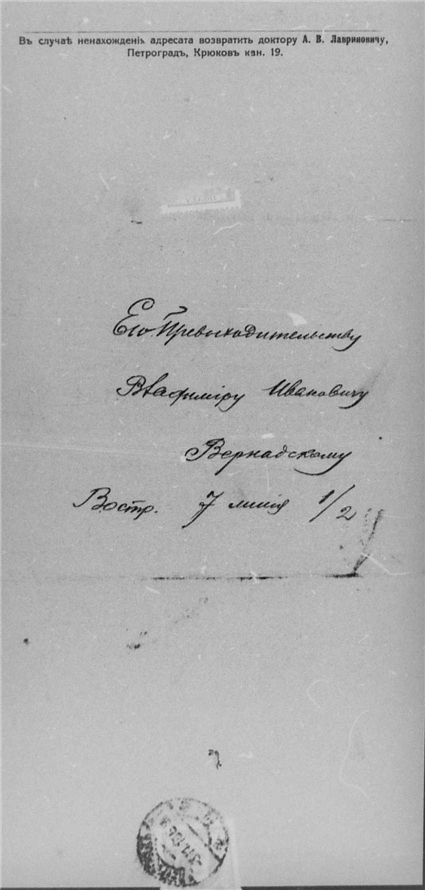 Въ случаѣ ненахожденія адресата возвратить доктору А. В. Лавриновичу,
Петроградъ, Крюковъ кан. 19.
Его Превыходительству
Владиміру Ивановичу
Вернадскому
В. остр. 7 линія 1/2